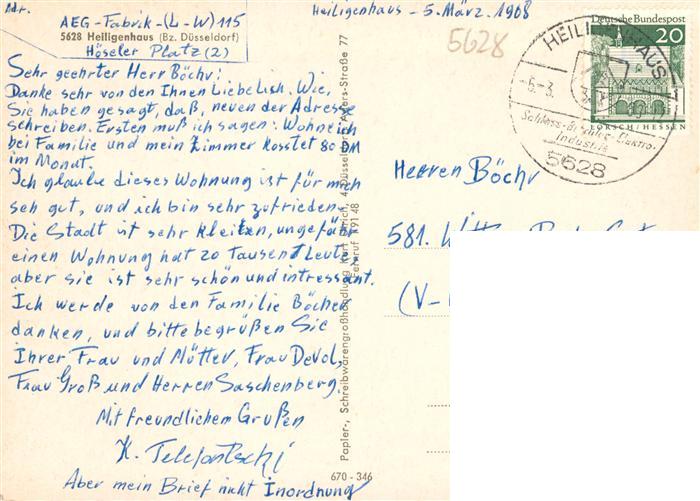 Adr.
AEG-Fabrik-(L-W) 115
5628 Heiligenhaus (Bz. Düsseldorf)
Höseler Platz (2)
Heiligenhaus - 5. März. 1968
5628
Sehr geehrter Herr Böchv!
Danke sehr von den Ihnen Liebelish. Wie,
Sie haben gesagt, daß, neven der Adresse
schreiben. Ersten muß ich sagen: Wohne ich
bei Familie und mein Zimmer kosstet 80 DM
im Monat.
Ich glaube dieses Wohnung ist für mich
seh gut, und ich bin sehr zufrieden.
Die Stadt ist sehr klein, ungefähr
einen Wohnung hat 20 tausent Leut,
aber sie ist sehr schön und intressant.
Ich werde von den Familie Böcher
danken, und bitte begrüßen Sie
Ihrer Frau und Mütter, Frau Devol,
Frau Groß und Herren Saschenberg.
Mit freundlichem Grußen
Aber mein Brief nicht Inordnung
Papier-, Schreibwarengroßhandlung Kurt 4 Düsseldorf, -Straße 77
Fernruf 48
670 - 346
Deutsche Bundespost
20
LORSCH/HESSEN
HEILIGENHAUS
-6.-3.
Schloss- Elektro-
Industrie
5628
Herren Böchv
581.
(V-